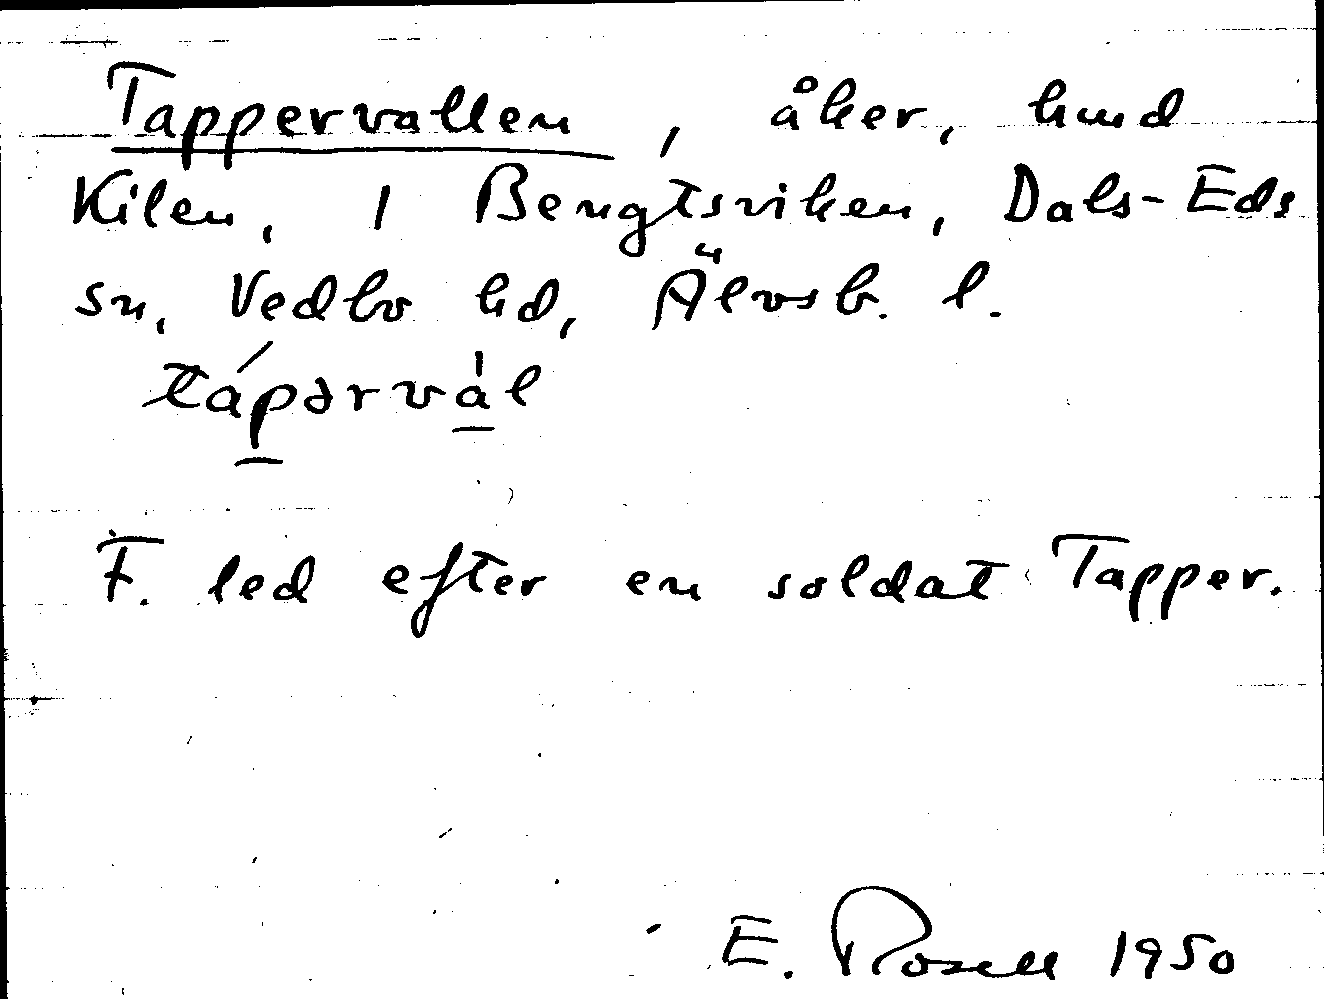 Tappervallen, åker, hmd
Kilen, 1 Bengtsviken, Dals-Eds
sn, Vedbo hd, Älvsb. l.
tápərvàl
F. led efter en soldat Tapper.
E. Rosell 1950